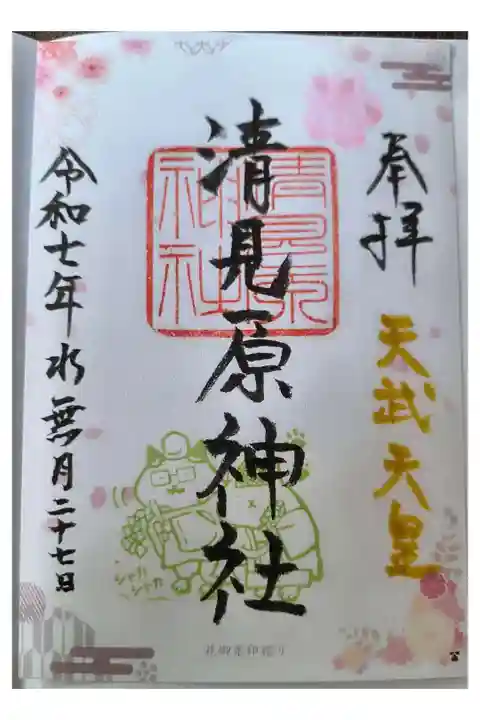 奉拝
天武天皇
清見原神社
清見原神社
令和七年水無月二十七日
シャカ
シャカ